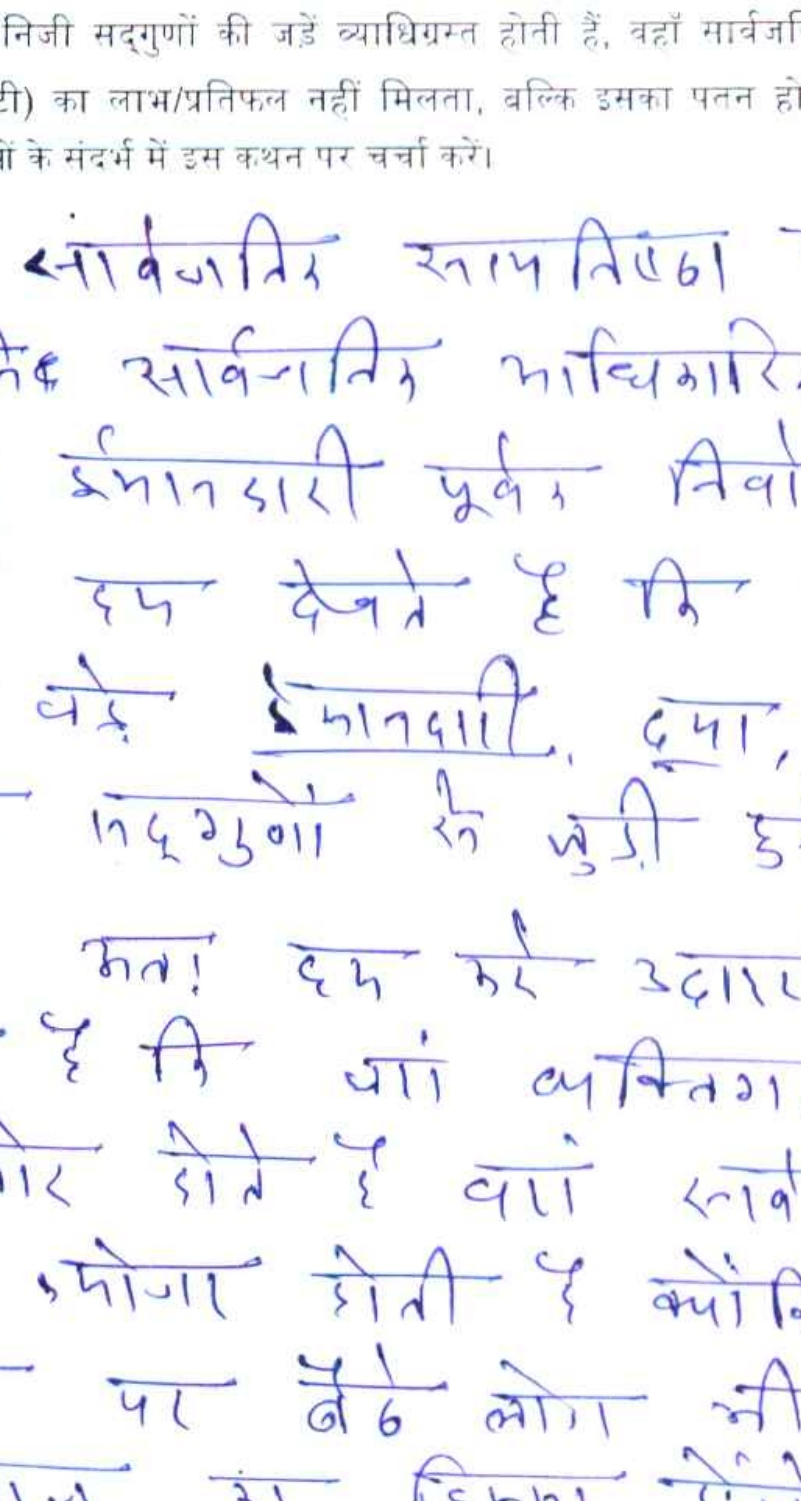 निजी सद्‌गुणों की जड़ें व्याधिग्रस्त होती हैं, वहाँ सार्वजनि
टी) का लाभ/प्रतिफल नहीं मिलता, बल्कि इसका पतन हो
ों के संदर्भ में इस कथन पर चर्चा करें।
सार्वजनिक सत्यनिष्ठा
सार्वजनिक आधिकारि
ईमानदारी पूर्वक निर्वा
हम देखते है कि
बड़े ईमानदारी, दया,
सद्‌गुणों से जुड़ी हु
अतः हम कई उदाहर
है कि जहां व्यक्तिग
ोर होते है वहां सार्व
कमजोर होती है क्योंकि
पर बैठे लोग भी